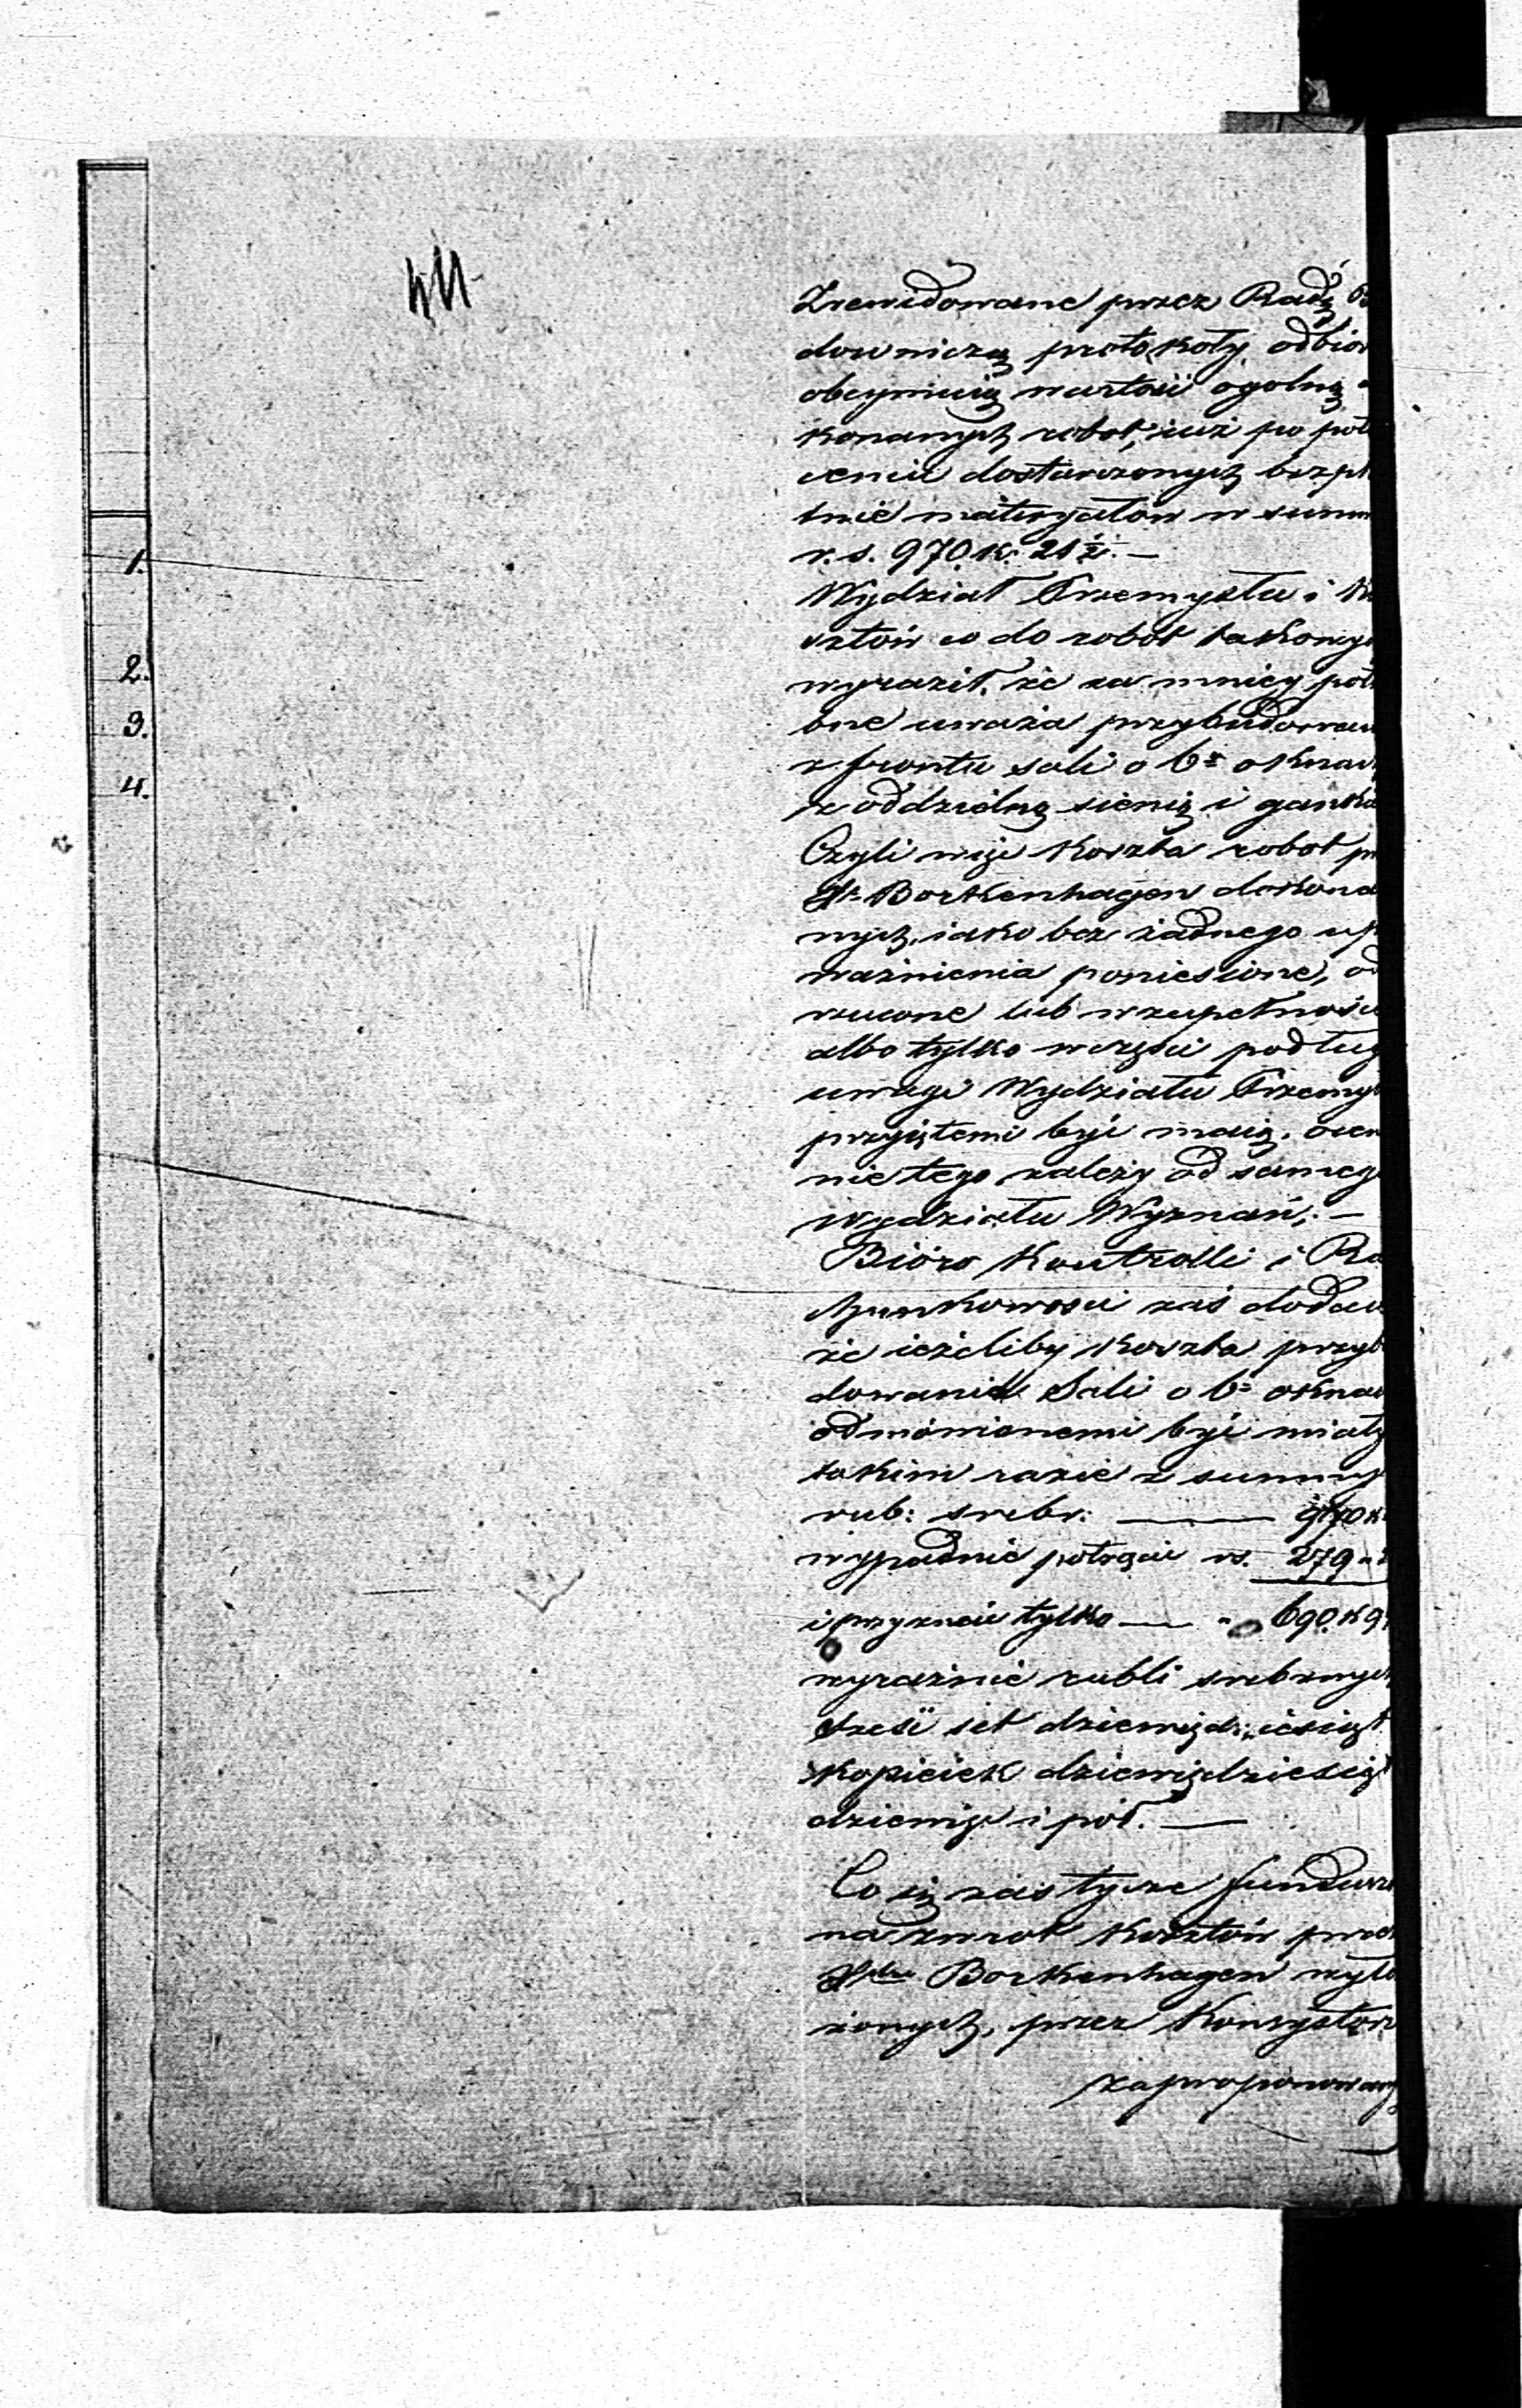 1.
2.
3.
4.
Zrewidowane przez Radę B
downiczą protokoły odbior
obeymuią wartość ogolną
konanych robot, iuż po potr
ceniu dostarczonych bezpł
tnie materyałów w summ
r. s. 970. k. 21 ½. —
Wydział Przemysłu i Ku
sztów co do robot takowyc
wyraził, że za mniey potr
bne uważa przybudowan
z frontu sali o 6ⁿ oknach
z oddzielną sienią i gankie
Czyli więc koszta robot pr
Borkenhagen dokona
nych, iako bez żadnego up
ważnienia poniesione, od
rzucone lub w zupełności
albo tylko w części podług
uwagi Wydziału Przemysł
przyiętemi być maią, ocen
nie tego zależy od samego
Wydziału Wyznań; —
Bióro Kontrolli i Ra
chunkowosci zaś dodaie
że ieżeliby koszta przyb
dowania Sali o 6 oknac
odmówionemi być miały
takim razie z summy
rub: srebr: — 970 k.
wypadnie potrącić rs. 279
i przyznać tylko — " 690. k 9
wyraźnie rubli srebrnych
sześć set dziewięćdziesiąt
kopieiek dziewięćdziesiąt
dziewięć i pół. —
Co się zas tycze fundusz
na zwrot kosztów przez
Borkenhagen wyło
żonych, przez Konsystorz
zaproponowany